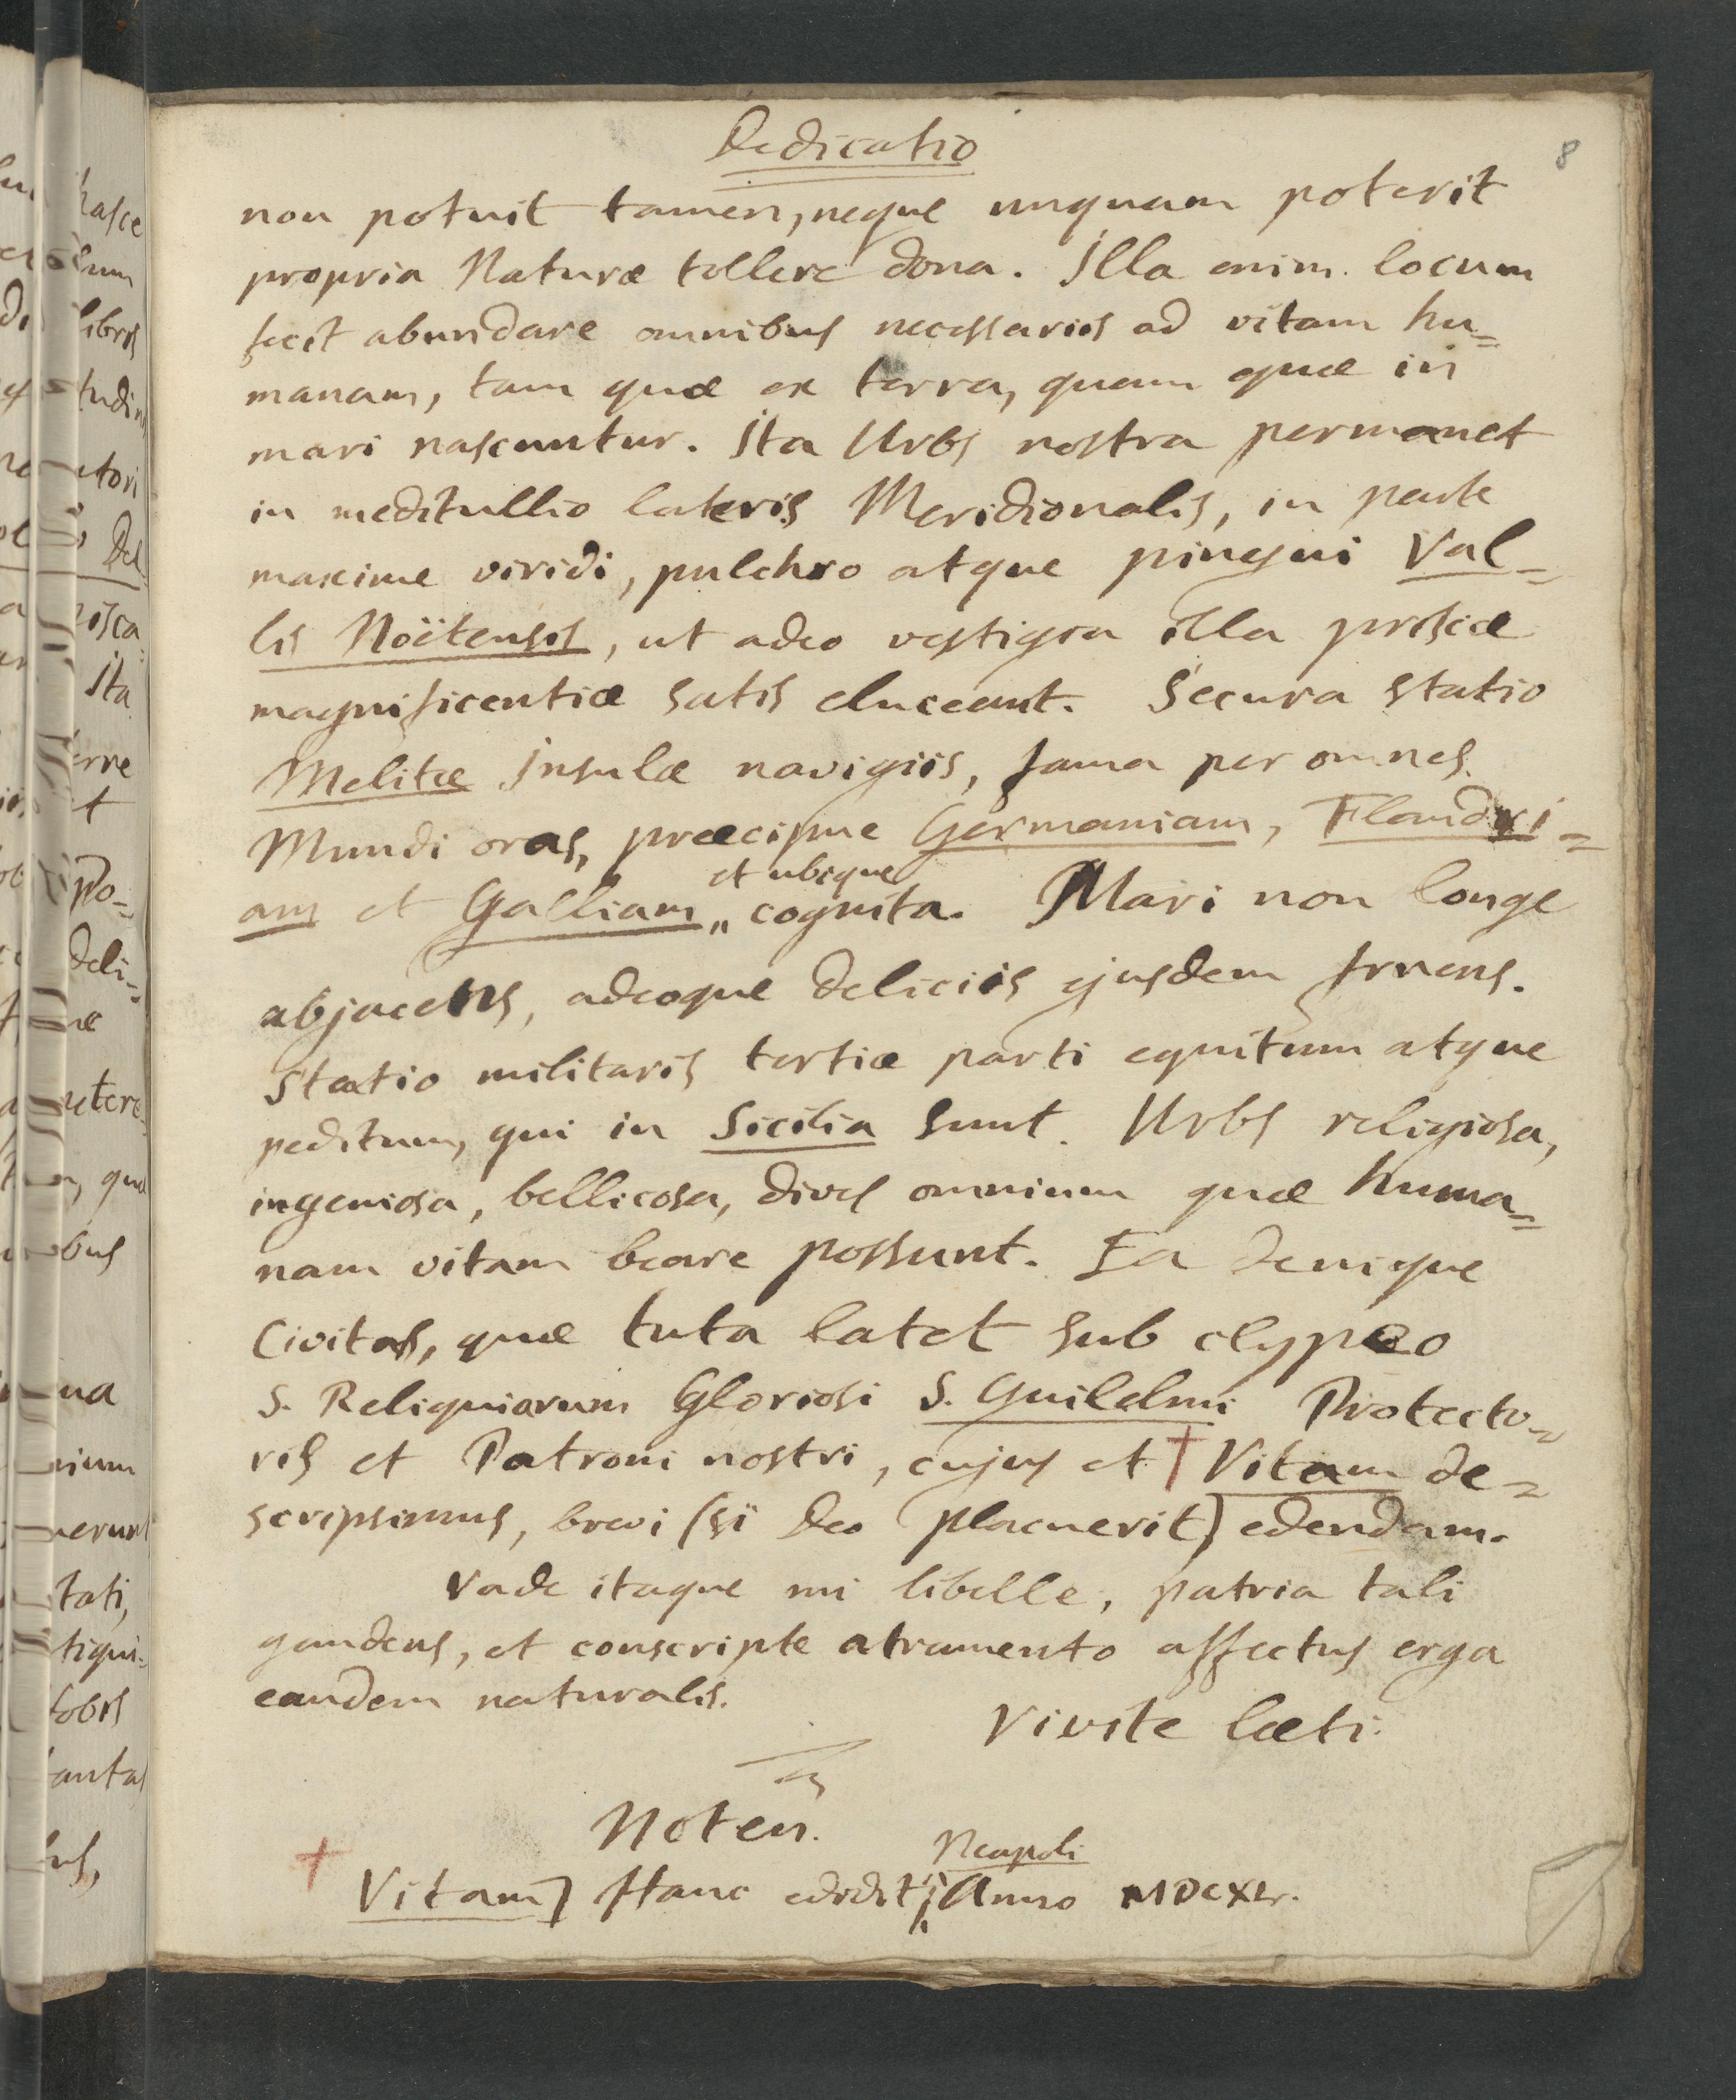 Dedicatio
8
non potuit tamen, neque unquam poterit
propria Naturæ tollere dona. Illa enim locum
fecit abundare omnibus necessariis ad vitam hu=
manam, tam quæ ex terra, quam quæ in
mari nascuntur. Ita Urbs nostra permanet
in meditullio lateris Meridionalis, in parte
maxime viridi, pulchro atque pingui Val=
lis Noëtensis, ut adeo vestigia illa priscæ
magnificentiæ satis eluceant. Secura statio
Melitæ Insulæ navigiis, fama per omnes
Mundi oras, præcipue Germaniam, Flandri=
et ubique
am et Galliam „ cognita. Mari non longe
abjacens, adeoque deliciis ejusdem fruens.
Statio militaris tertiæ parti equitum atque
peditum, qui in Sicilia sunt. Urbs religiosa,
ingeniosa, bellicosa, dives omnium quæ huma=
nam vitam beare possunt. Ea denique
Civitas, quæ tuta latet sub clypeo
S. Reliquiarum Gloriosi S. Guilelmi Protecto=
ris et Patroni nostri, cujus et † Vitam de=
scripsimus, brevi (si Deo placuerit) edendam.
Vade itaque mi libelle, patria tali
gaudens, et conscripte atramento affectus erga
eandem naturalis.
Vivite læti.
Noten.
Neapoli
† Vitam] Hanc edidit Anno MDCXL.
hasce
libris
Ita
erre
po=
deli=
bus
ua
nium
tati,
tiqui=